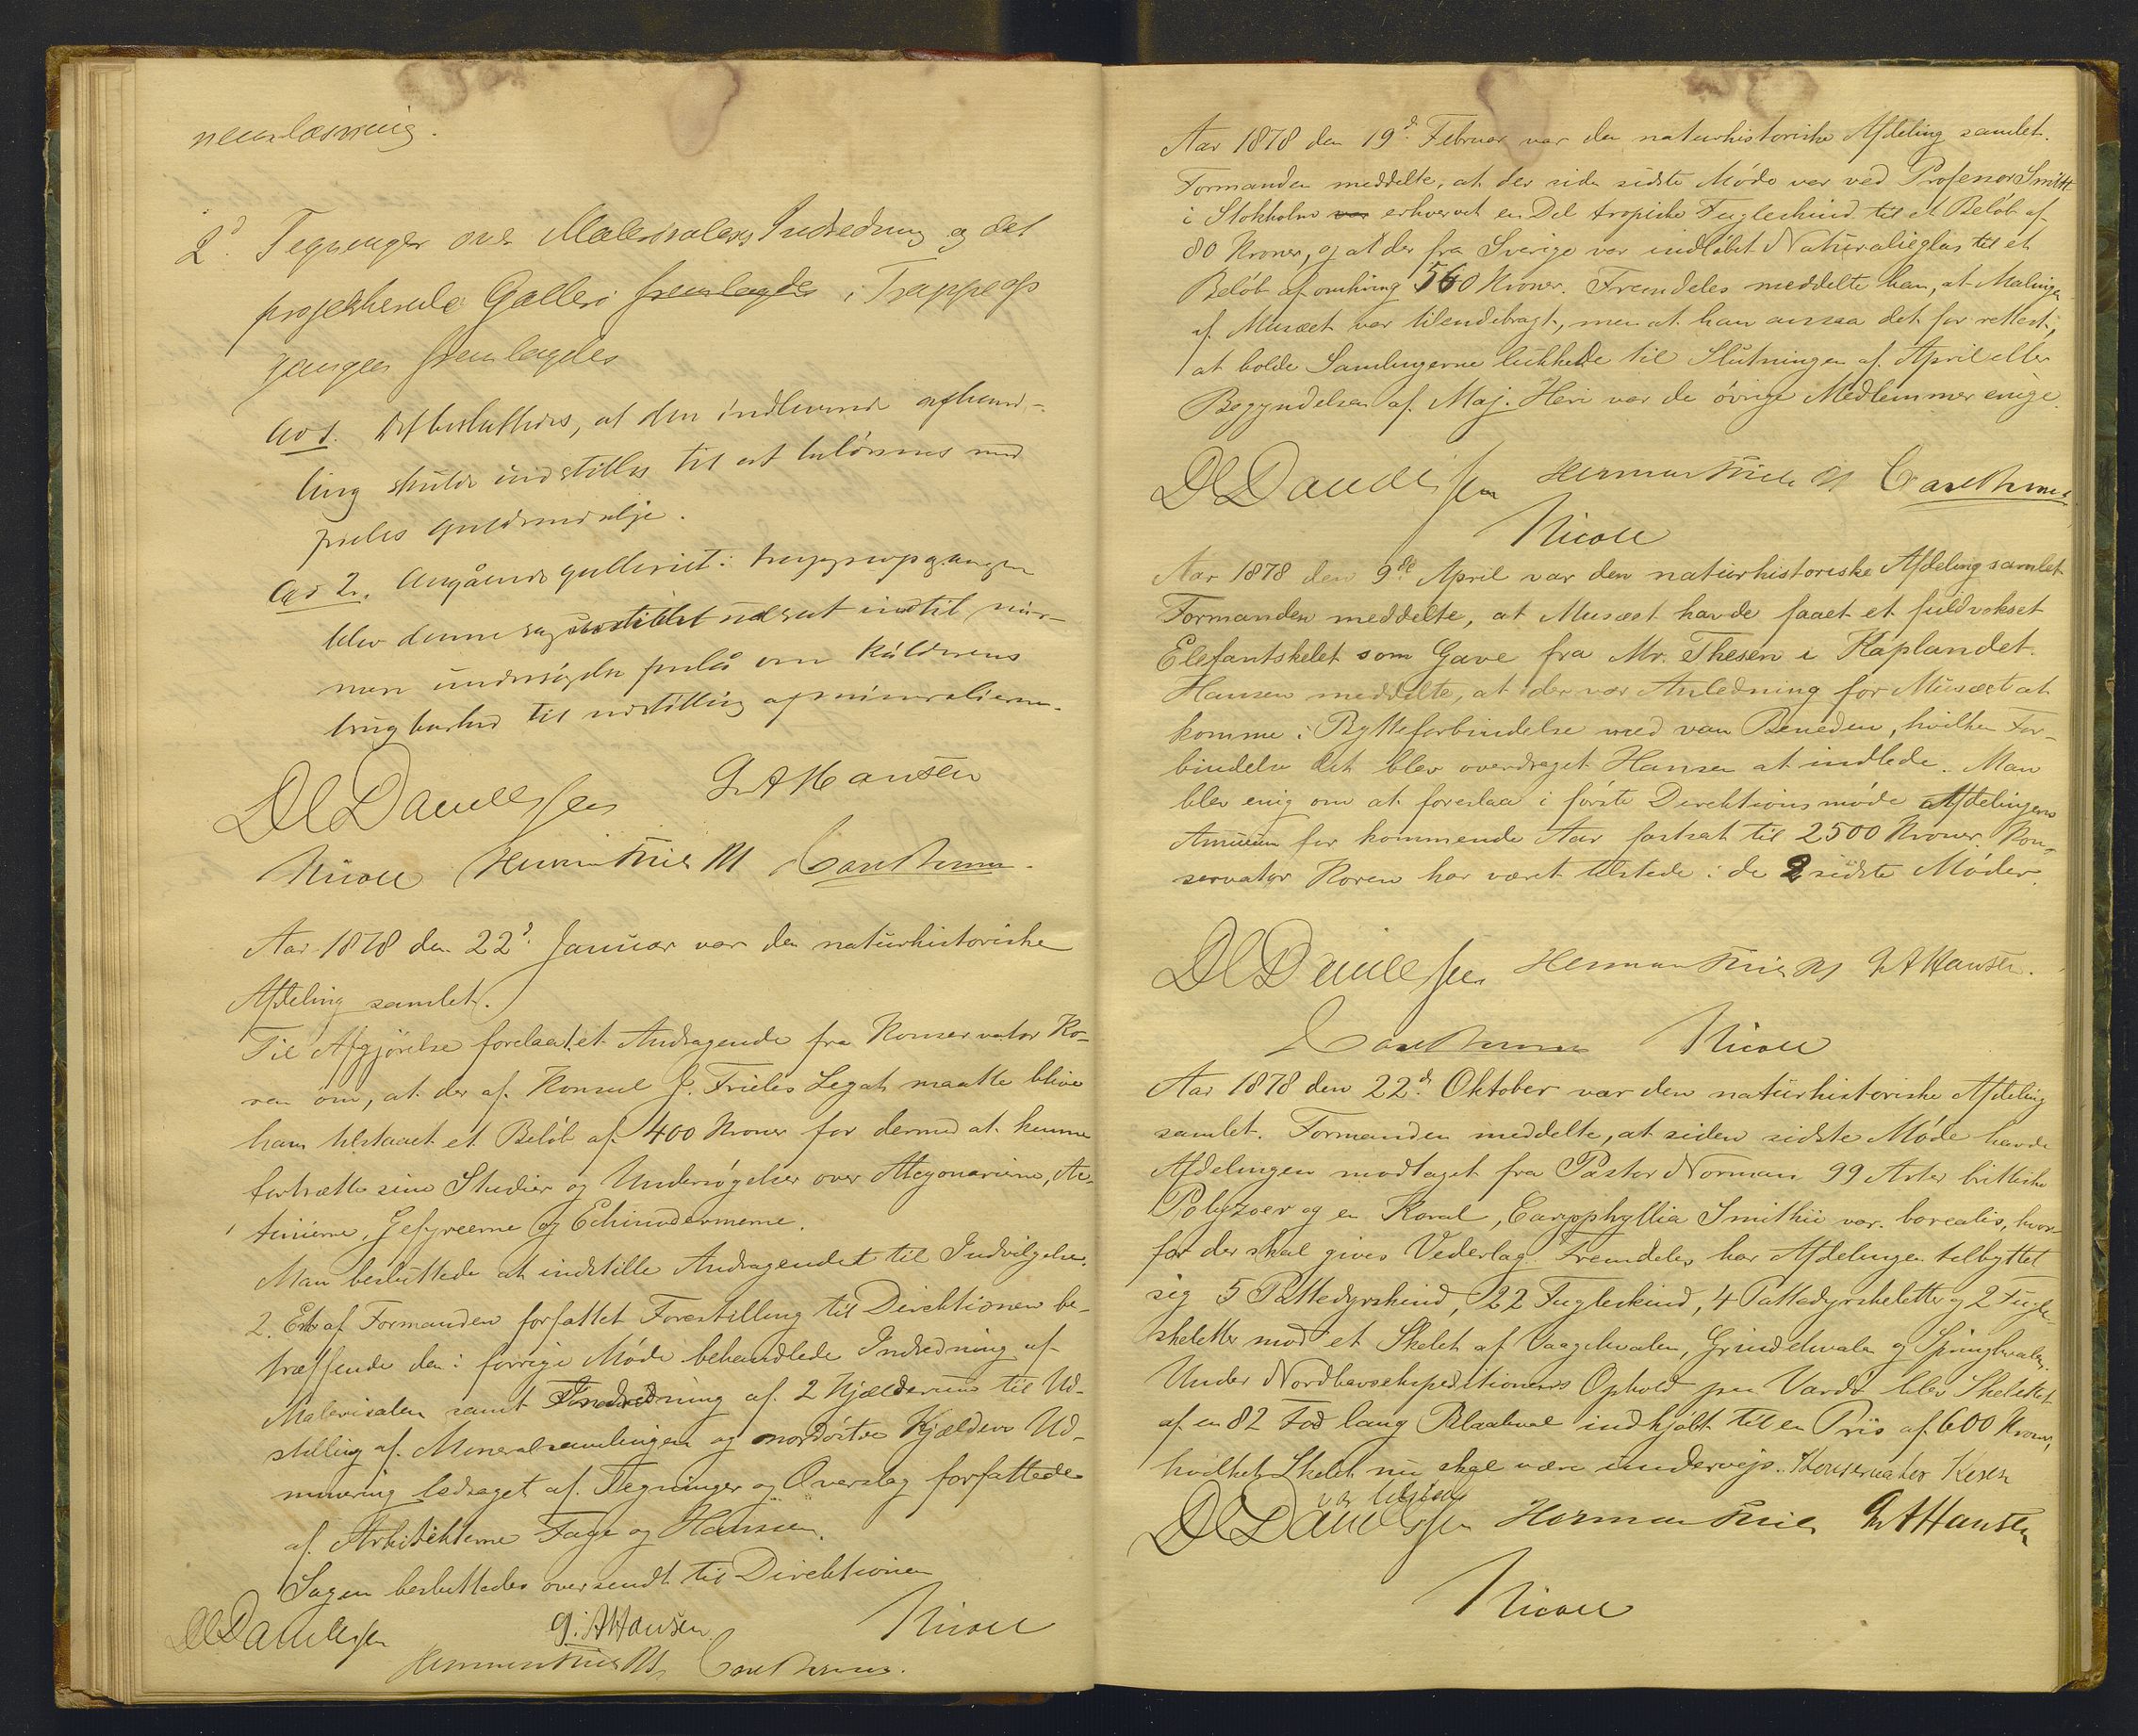 nemlæsning.
2d. Tegninger over Malerisalens Indredning og det
projekterede Galleri fremlagdes i Trappeop
gangen fremlagdes
Ad 1. Det besluttedes, at den indleverede afhand-
ling skulde indstilles til at belönnes med
frieles guldmedalje.
Ad 2. Angående galleriet i trappeopgangen
blev denne sag udsat indtil nær-
mere undersögelse forelå om kâldernes
brugbarhed til udstilling af mineralierne.
DCDanielssen GAHansen
Nicoll Herman Friele M Carl Brun.
Aar 1878 den 22d. Januar var den naturhistoriske
Afdeling samlet.
Til Afgjörelse forelaa 1. et Andragende fra Konservator Ko-
ren om, at der af Konsul J. Frieles Legat maatte blive
ham tilstaaet et Belöb af 400 Kroner for dermed at kunne
fortsætte sine Studier og Undersögelser over Alcyonarierne, Ac-
tinierne, Gefyreerne og Echinodermerne.
Man besluttede at indstille Andragendet til Indvilgelse.
2. En af Formanden forfattet Forestilling til Direktionen be-
træffende den i forrige Möde behandlede Indredning af
Malerisalen samt Indredning af 2 Kjælderrum til Ud-
stilling af Mineralsamlingen og nordöstre Kjælders Ud-
minering ledsaget af Tegninger og Overslag forfattede
af Arkitekterne Faye og Hansen.
Sagen besluttedes oversendt til Direktionen
DCDanielssen G.AHansen. Nicoll
Herman Friele M Carl Brun.
Aar 1878 den 19d. Februar var den naturhistoriske Afdeling samlet.
Formanden meddelte, at der siden sidste Möde var ved Professor Smitt
i Stokholm var erhvervet en Del tropiske Fugleskind til et Belöb af
80 Kroner, og at der fra Sverige var indköbt Naturalieglas til et
Belöb af omkring 560 Kroner. Fremdeles meddelte han, at Malingen
af Musæet var tilendebragt, men at han ansaa det for rettest,
at holde Samlingerne lukkede til Slutningen af April eller
Begyndelsen af Maj. Heri var de övrige Medlemmer enige.
DCDanielssen Herman Friele M Carl Brun
Nicoll
Aar 1878 den 9de April var den naturhistoriske Afdeling samlet
Formanden meddelte, at Musæet havde faaet et fuldvokset
Elefantskelet som Gave fra Mr. Thesen i Kaplandet.
Hansen meddelte, at der var Anledning for Musæet at
komme i Bytteforbindelse med van Beneden, hvilken For-
bindelse det blev overdraget Hansen at indlede. Man
blev enig om at foreslaa i förste Direktionsmöde Afdelingens
Annuum for kommende Aar fastsat til 2500 Kroner. Kon-
servator Koren har været tilstede i de 2 sidste Möder.
DCDanielssen Herman Friele M GAHansen.
Carl Brun Nicoll
Aar 1878 den 22d. Oktober var den naturhistoriske Afdeling
samlet. Formanden meddelte, at siden sidste Möde havde
Afdelingen modtaget fra Pastor Norman 99 Arter brittiske
Polyzoer og en Koral, Caryophyllia Smithii var. borealis, hvor-
for der skal gives Vederlag. Fremdeles har Afdelingen tilbyttet
sig 5 Pattedyrskind, 22 Fugleskind, 4 Pattedyrskeletter og 2 Fugle-
skeletter mod et Skelet af Vaagehvalen, Grindehvalen og Springhvalen.
Under Nordhavsekspeditionens Ophold paa Vardö blev Skelettet
af en 82 Fod lang Blaahval indkjöbt til en Pris af 600 Kroner,
hvilket Skelet nu skal være undervejs. Konservator Koren
var tilstede
DCDanielssen Herman Friele GAHansen
Nicoll